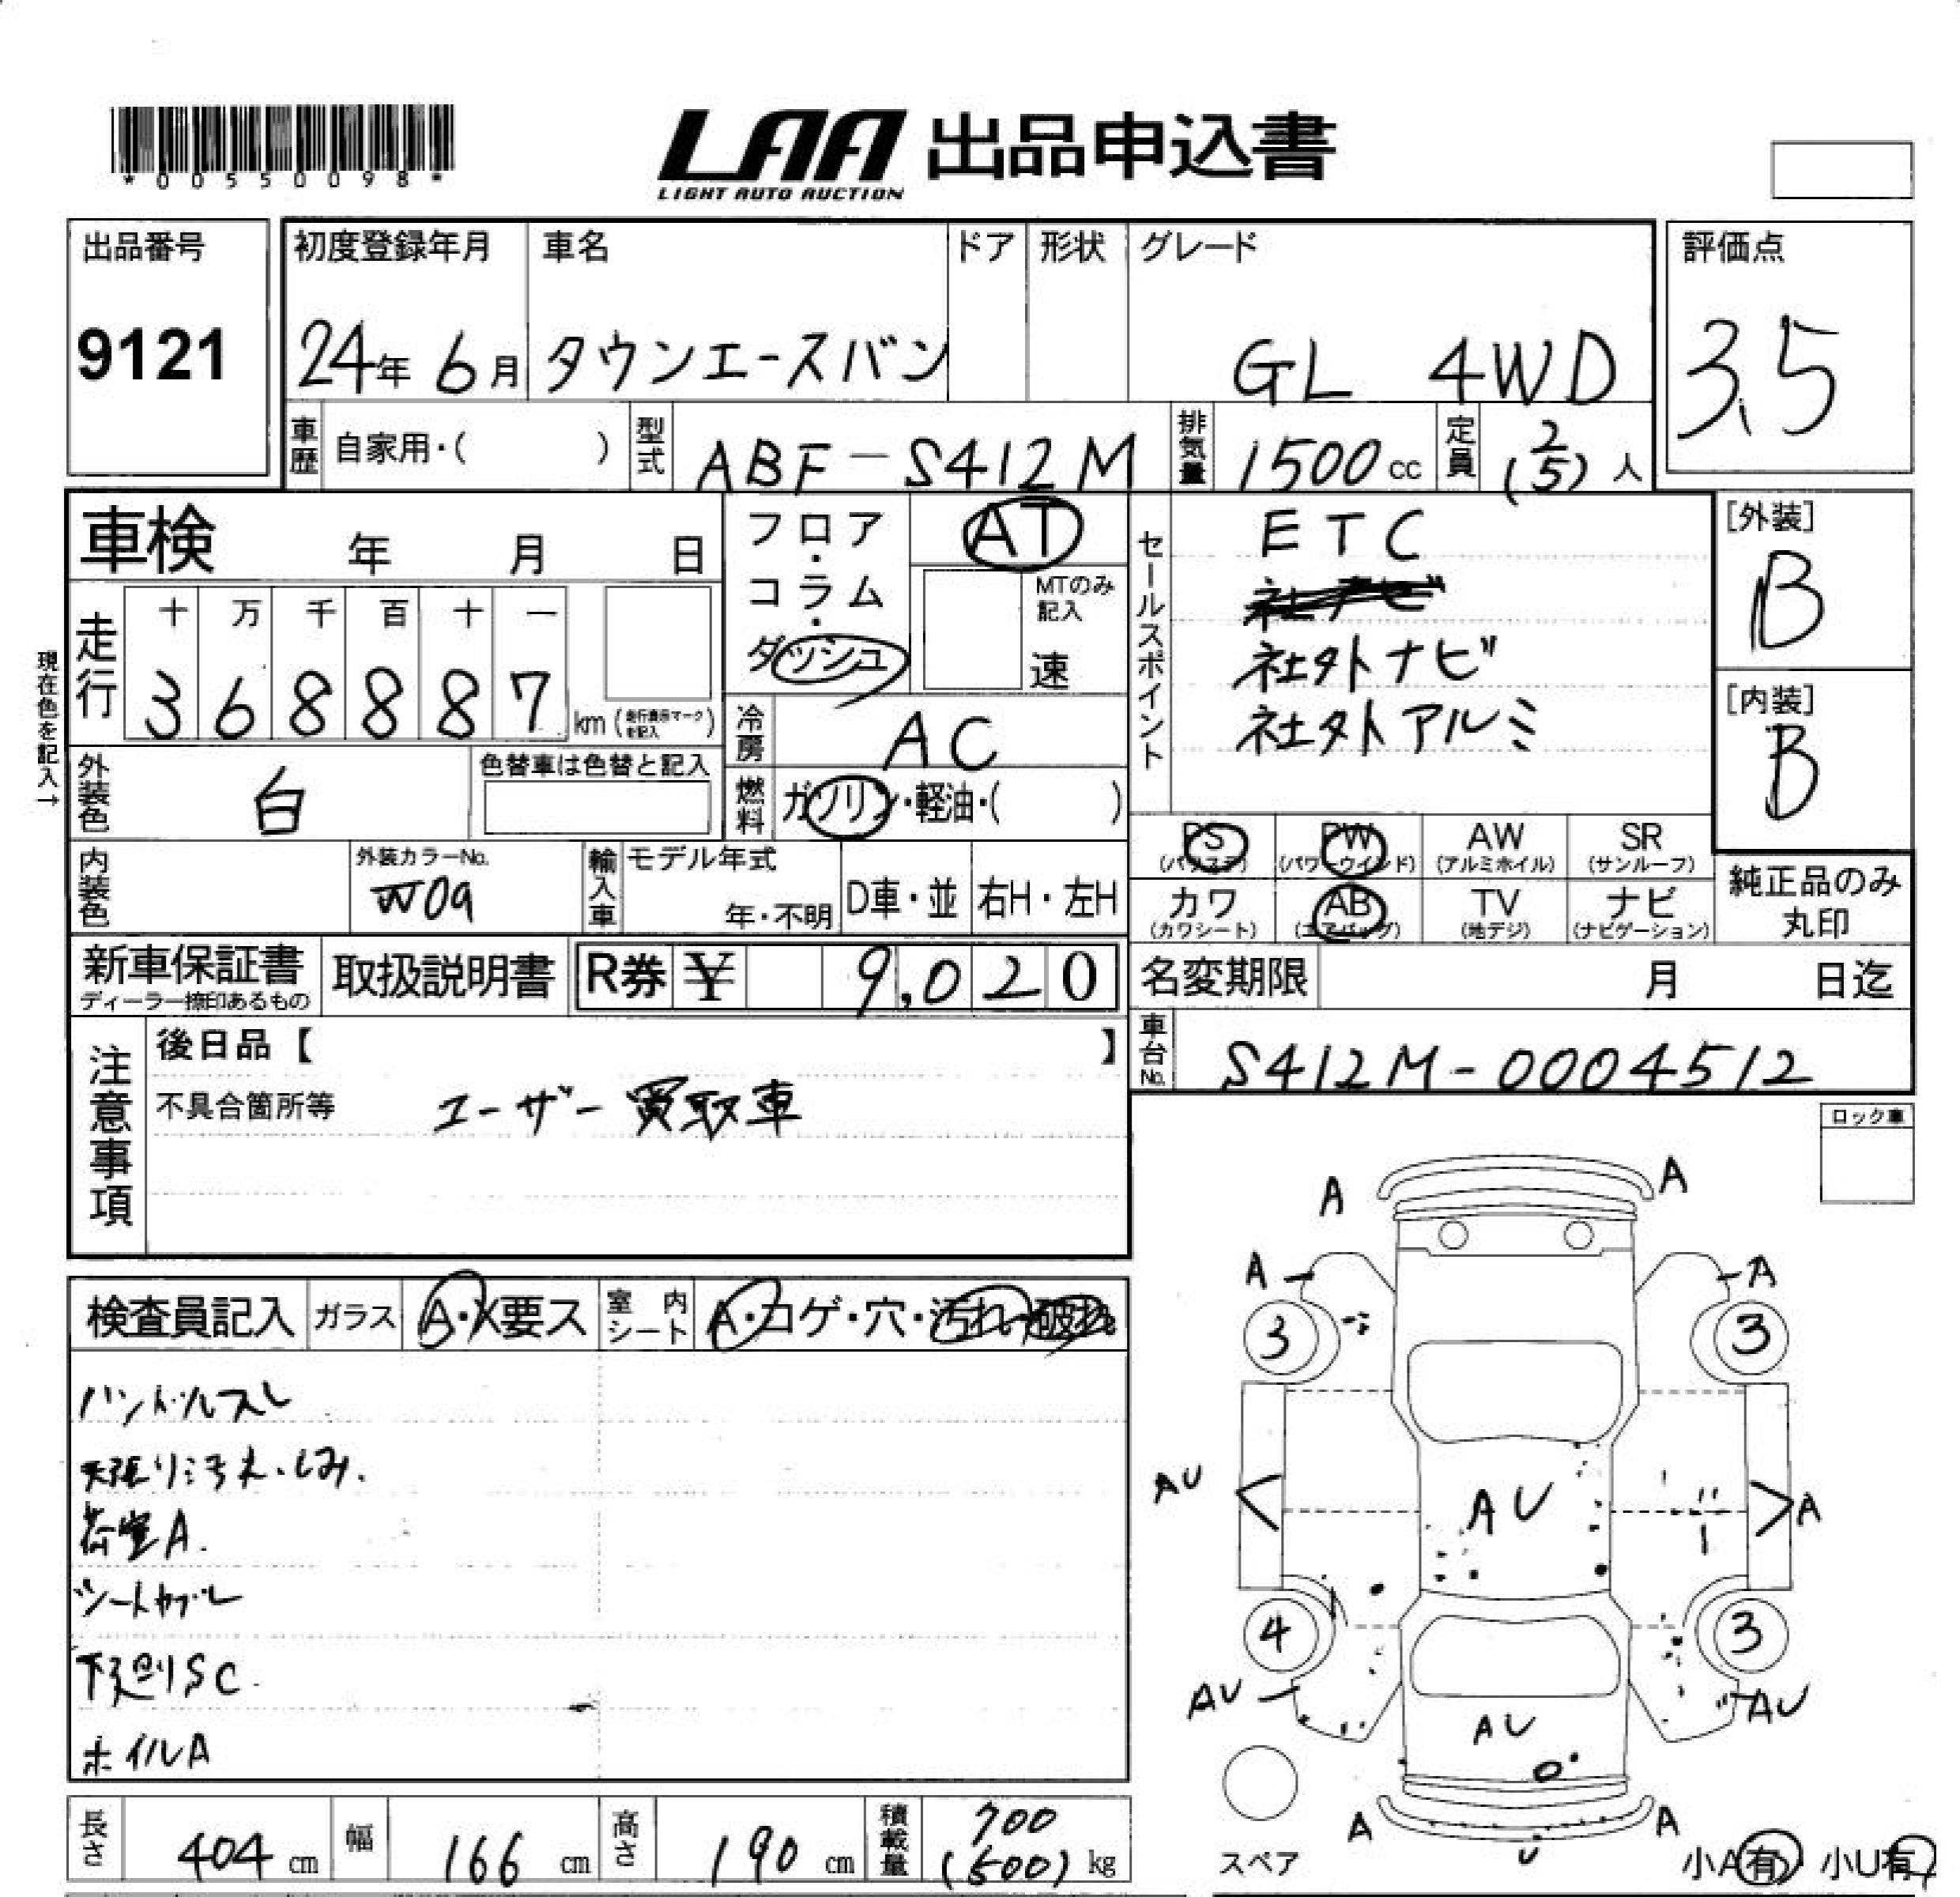 *00550098*
LAA 出品申込書
LIGHT AUTO AUCTION
出品番号
9121
初度登録年月
24年 6月
車名
タウンエースバン
ドア
形状
グレード
GL 4WD
評価点
3.5
車歴 自家用・( )
型式 ABF-S412M
排気量 1500cc
定員 2(5)人
車検 年 月 日
フロア・コラム・ダッシュ
AT
MTのみ記入
速
セールスポイント
ETC
社外ナビ
社外アルミ
[外装]
B
[内装]
B
現在色を記入→
走行
十 万 千 百 十 一
3 6 8 8 8 7 km (走行表示マークを記入)
冷房 AC
外装色 白
色替車は色替と記入
燃料 ガソリン・軽油・( )
PS (パワステ) PW (パワーウインド) AW (アルミホイル) SR (サンルーフ)
カワ (カワシート) AB (エアバッグ) TV (地デジ) ナビ (ナビゲーション)
純正品のみ丸印
内装色
外装カラーNo.
W09
輸入車 モデル年式
年・不明
D車・並
右H・左H
新車保証書
ディーラー捺印あるもの
取扱説明書
R券 ¥ 9,020
名変期限 月 日迄
車台No. S412M-0004512
注意事項
後日品【 】
不具合箇所等 ユーザー買取車
ロック車
検査員記入 ガラス A・X要ス 室内シート A・コゲ・穴・汚れ・破れ
ハンドルスレ
天張り汚れ.しみ.
荷室A.
シートカブレ
下廻りSC.
ホイルA
A A
A A
3 3
AU AU A
4 3
AU AU
AU
A U A
スペア
小A有 小U有
長さ 404cm
幅 166cm
高さ 190cm
積載量 700(500)kg